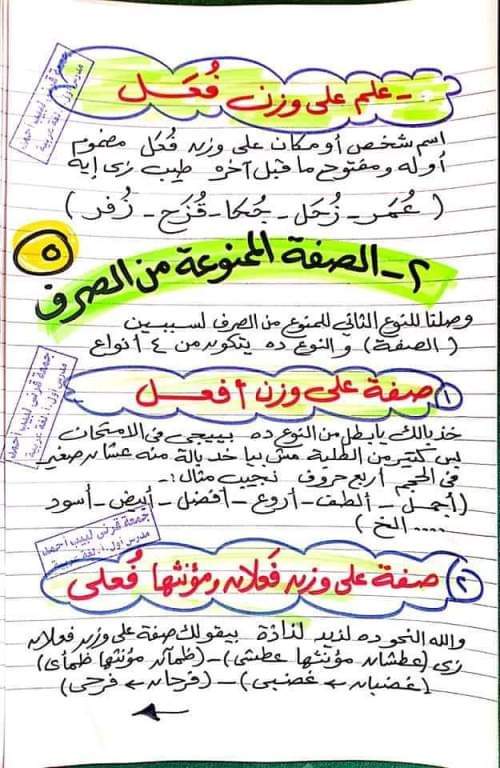 - علم على وزن فُعَل
اسم شخص أو مكان على وزن فُعَل مضموم
أوله ومفتوح ما قبل آخره طيب زى إيه
( عُمَر - زُحَل - جُحَا - قُزَح - زُفر )
٥
٢- الصفة الممنوعة من الصرف
وصلنا للنوع الثاني للممنوع من الصرف لسببين
( الصفة ) والنوع ده بيتكون من ٤ أنواع
١ صفة على وزن أفعل
خد بالك يا بطل من النوع ده بييجى فى الامتحان
بس كتير من الطلبة مش بياخد باله منه عشان صغير
فى الحجم أربع حروف نجيب مثال :-
( أجمل - ألطف - أروع - أفضل - أبيض - أسود
.... الخ )
٢ صفة على وزن فَعلان ومؤنثها فَُعلى
والله النحو ده لذيذ لذاذة بيقولك صفة على وزن فعلان
زى (عطشان مؤنثها عطشى) - (ظمآن مؤنثها ظمأى)
(غضبان ← غضبى) - (فرحان ← فرحى)
جمعة قرنى لبيب احمد
مدرس أول أ. لغة عربية
جمعة قرنى لبيب احمد
مدرس أول أ. لغة عربية
جمعة قرنى لبيب احمد
مدرس أول أ. لغة عربية